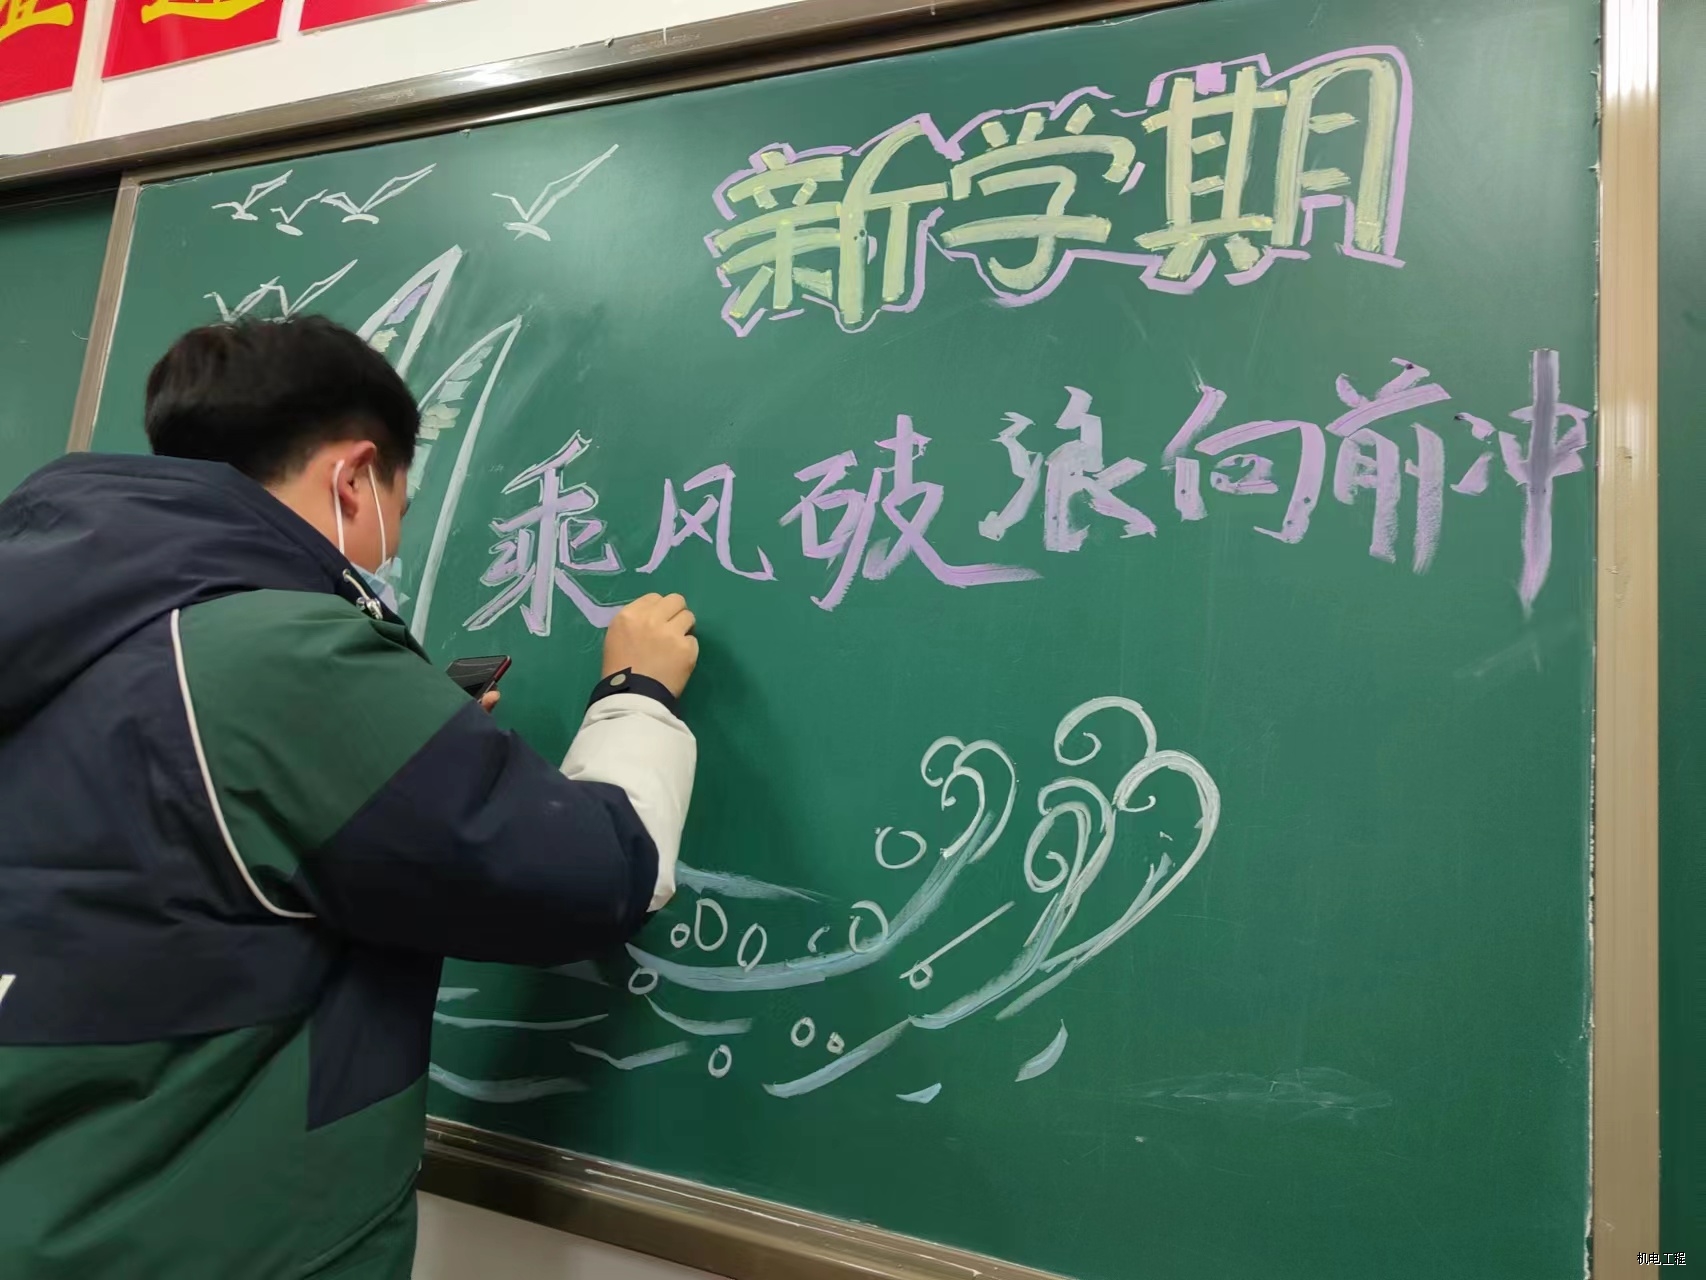 新学期
乘风破浪向前冲
机电工程